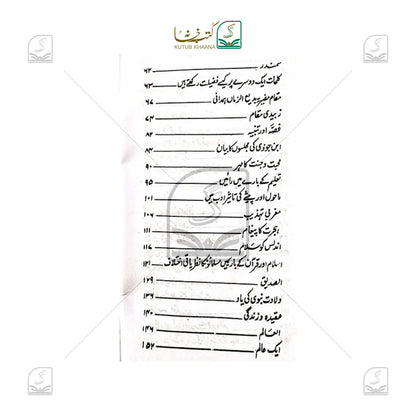 کتب خانہ
KUTUB KHAANA
سمندر ۶۲
کلمات ایک دوسرے پر کیسے فضیلت رکھتے ہیں ۶۳
مقام مضیریہ بدیع الزماں ہمدانی ۶۷
زبیدی مقام ۷۴
قصہ اور تنبیہ ۸۲
ابن جوزی کی مجلسوں کا بیان ۸۴
محبت و جنت کا مہر ۹۰
تعلیم کے بارے میں رائیں ۹۵
ماحول اور پیشے کی تاثیر ادب میں ۱۰۱
مغربی تہذیب ۱۰۶
ہجرت کا پیغام ۱۱۱
اندلس کو سلام ۱۱۷
اسلام اور قرآن کے بارے میں مسلمانوں کا نظریاتی اختلاف ۱۲۱
الصدیق ۱۲۹
ولادت نبوی کی یاد ۱۳۶
عقیدہ و زندگی ۱۴۰
العالم ۱۴۶
ایک عالم ۱۵۲